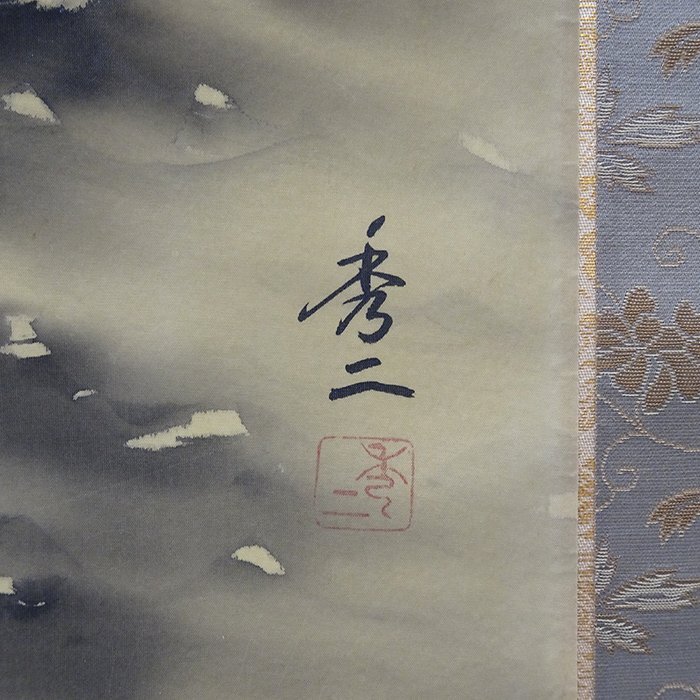 秀二
秀二